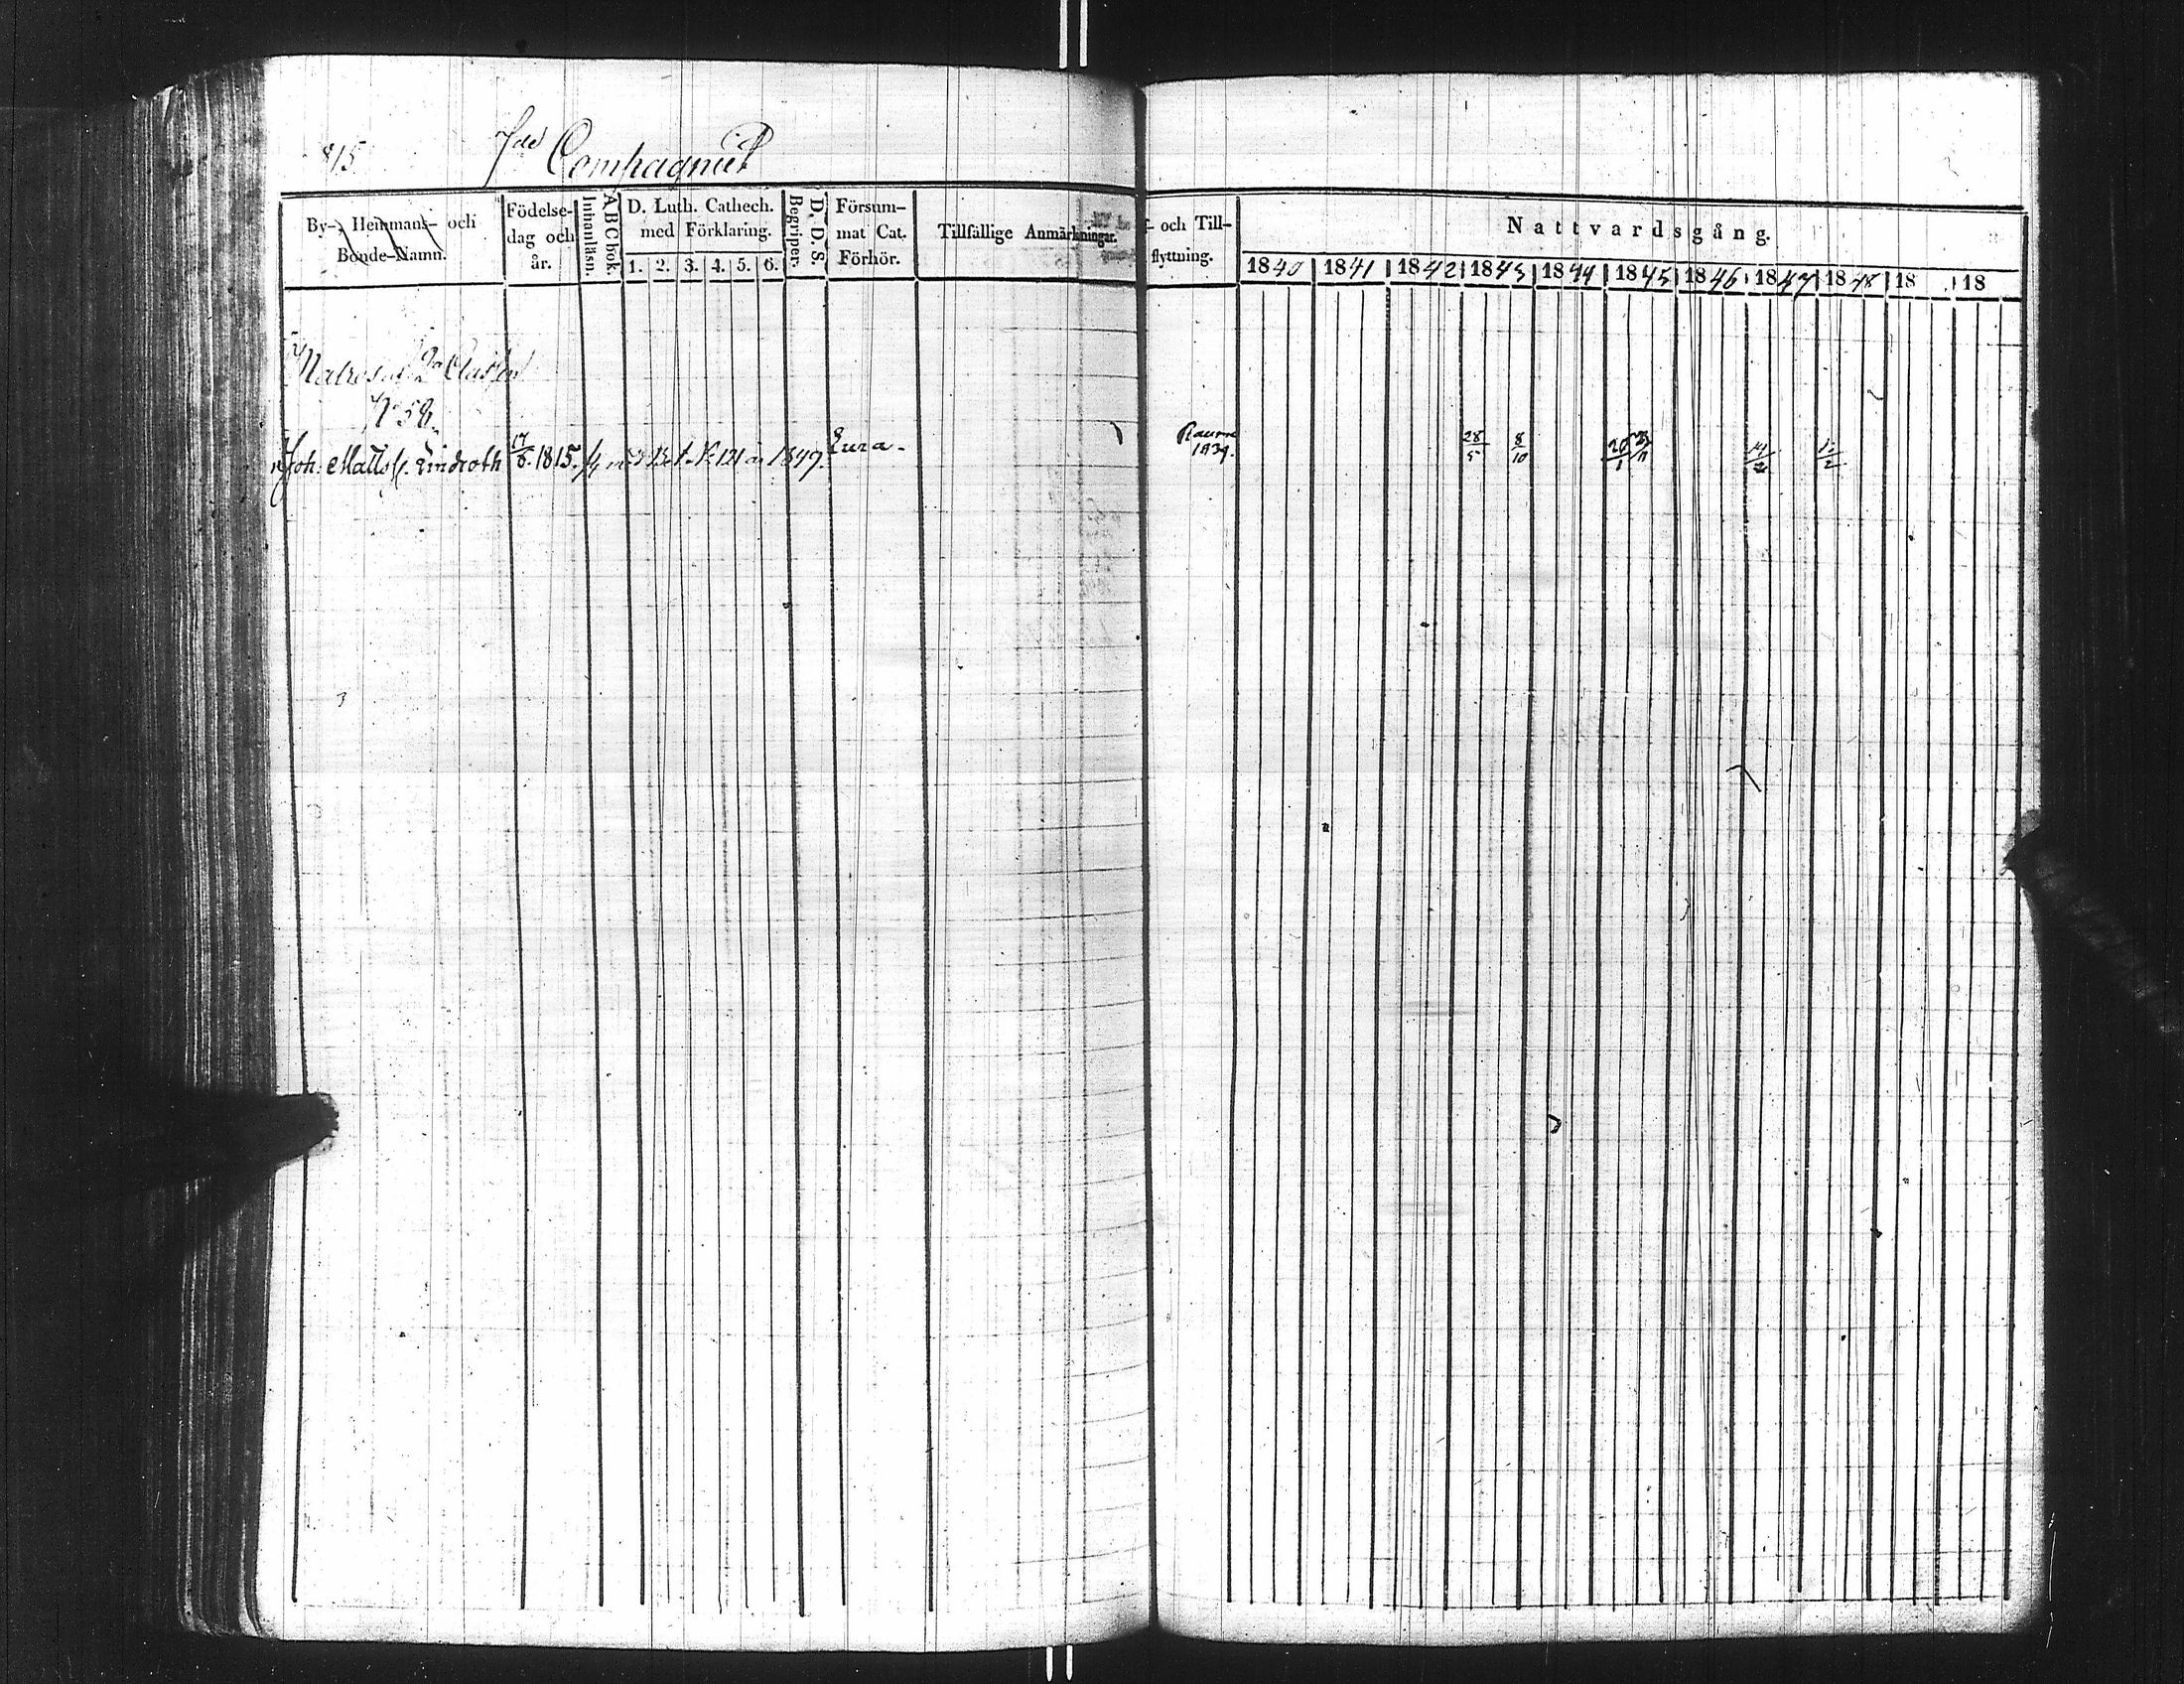 815 7de Compagniet
By-, Hemmans- och Bonde-Namn.
Födelse-dag och år.
A B C bok. Innanläsn.
D. Luth. Cathech. med Förklaring.
1. 2. 3. 4. 5. 6.
D. D. S. Begriper.
Försum-mat Cat. Förhör.
Tillfällige Anmärkningar.
- och Till-flyttning.
Nattvardsgång.
1840 1841 1842 1843 1844 1845 1846 1847 1848 18 18
2a Classen
No 58.
Joh: Matts S. Lindroth 17/8. 1815. 121 1847. Eura. Raumo 1839. 28/5 8/10 20/1